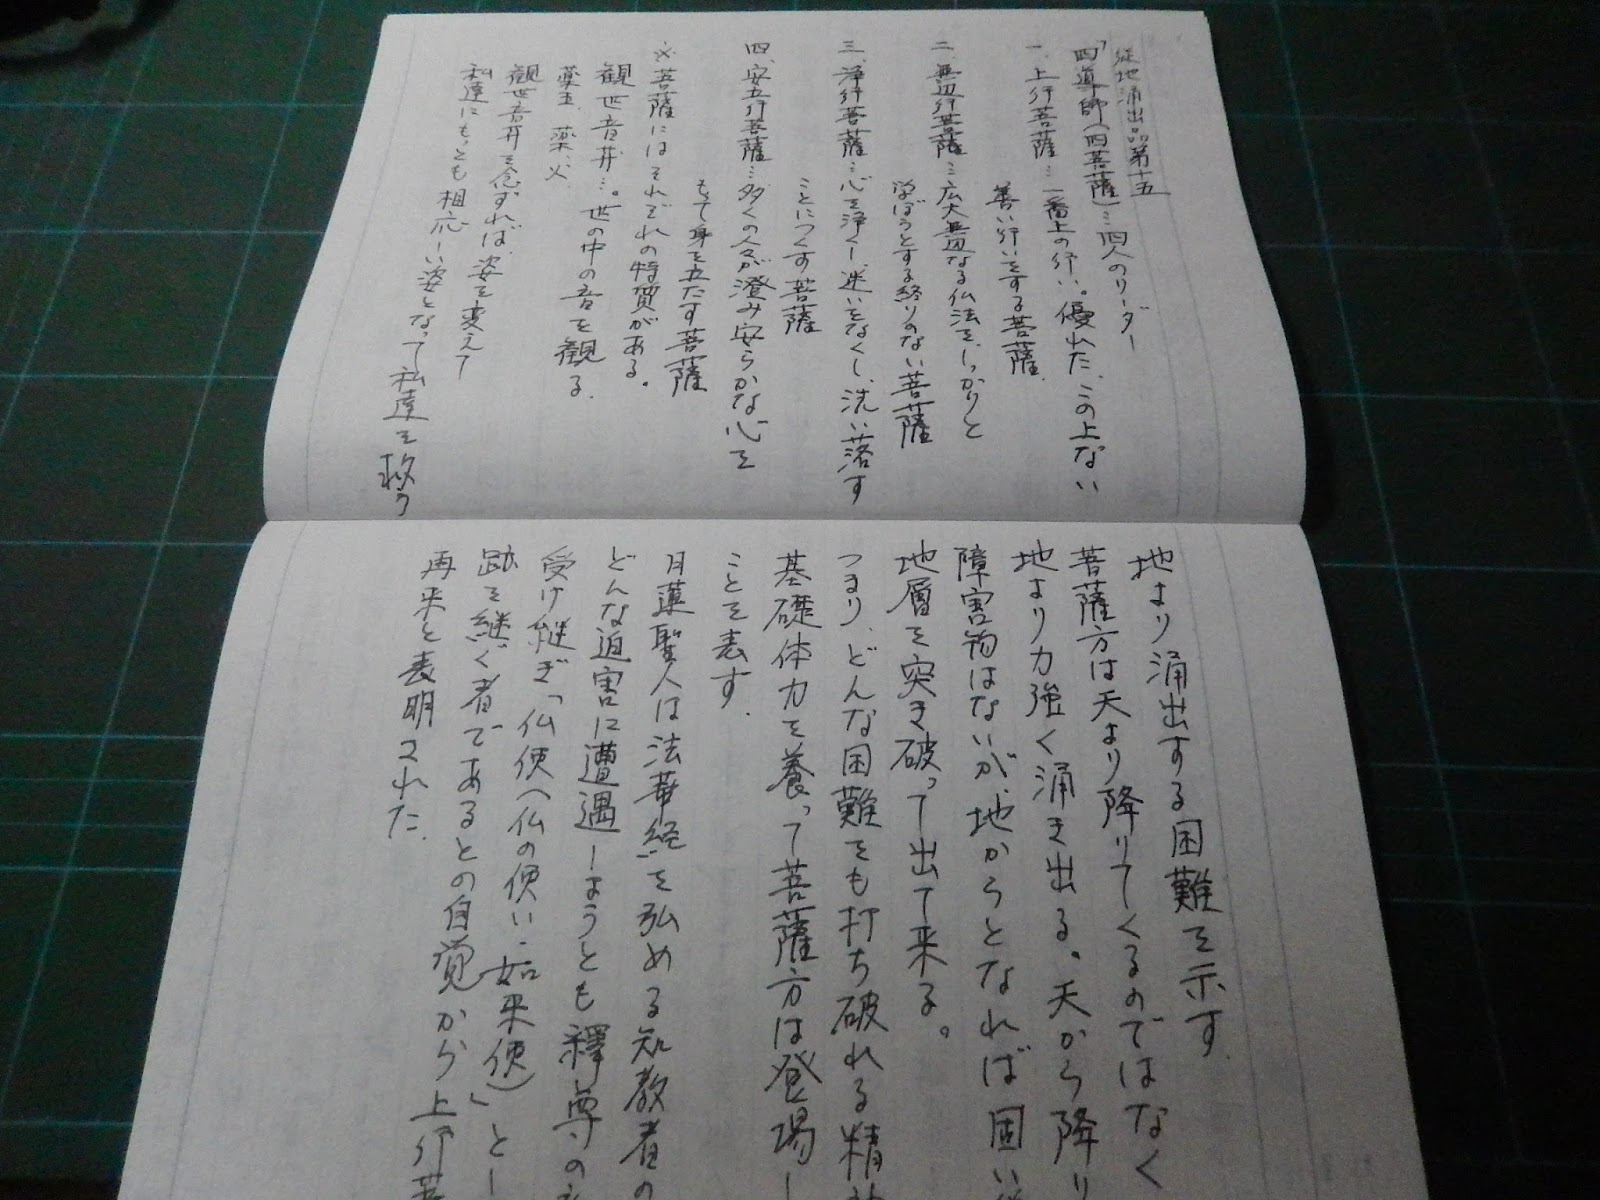 従地涌出品第十五
「四導師(四菩薩)…四人のリーダー
一、上行菩薩…一番上の行い。優れた、この上ない
善い行いをする菩薩、
二、無辺行菩薩…広大無辺なる仏法を、しっかりと
学ぼうとする終りのない菩薩
三、浄行菩薩…心を浄くし、迷いをなくし、洗い落す
ことにつくす菩薩
四、安立行菩薩…多くの人々が澄み安らかな心を
もって身を立たす菩薩
※菩薩にはそれぞれの特質がある。
観世音井…。世の中の音を観る、
薬王、薬、火、
観世音井を念ずれば、姿を変えて
私達にもっとも相応しい姿となって私達を救う
地より涌出する困難を示す、
菩薩方は天より降りてくるのではなく
地より力強く涌き出る。天から降り
障害物はないが、地からとなれば固い
地層を突き破って出て来る。
つまり、どんな困難をも打ち破れる精
基礎体力を養って菩薩方は登場し
ことを表す、
日蓮聖人は法華経を弘める知教者の
どんな迫害に遭遇しようとも釋尊の
受け継ぎ「仏使(仏の使い・如来使)」とし
跡を継ぐ者であるとの自覚から上行
再来と表明された、